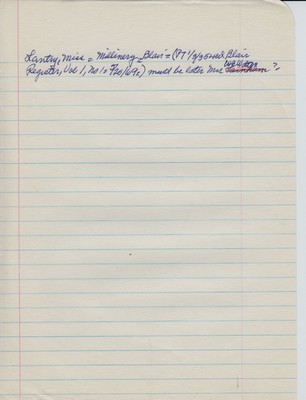 Lantry, Miss = Millinery Blair = (PT 1/9/36 Wed. Blair
Register, Vol 1, No 1 = 7/20/69c) must be later Mrs Farnham ?